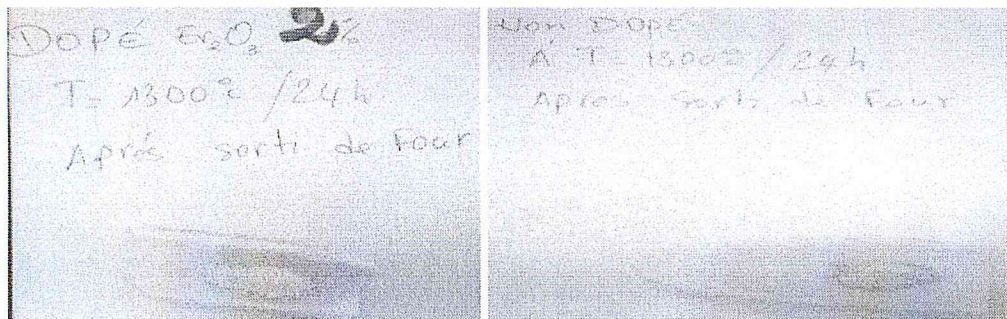 DOPÉ Er₂O₃ 2%
T= 1300°c /24h
Aprés sorti de Four
Non DOPÉ
À T= 1300°c / 24h
Après sorti de Four